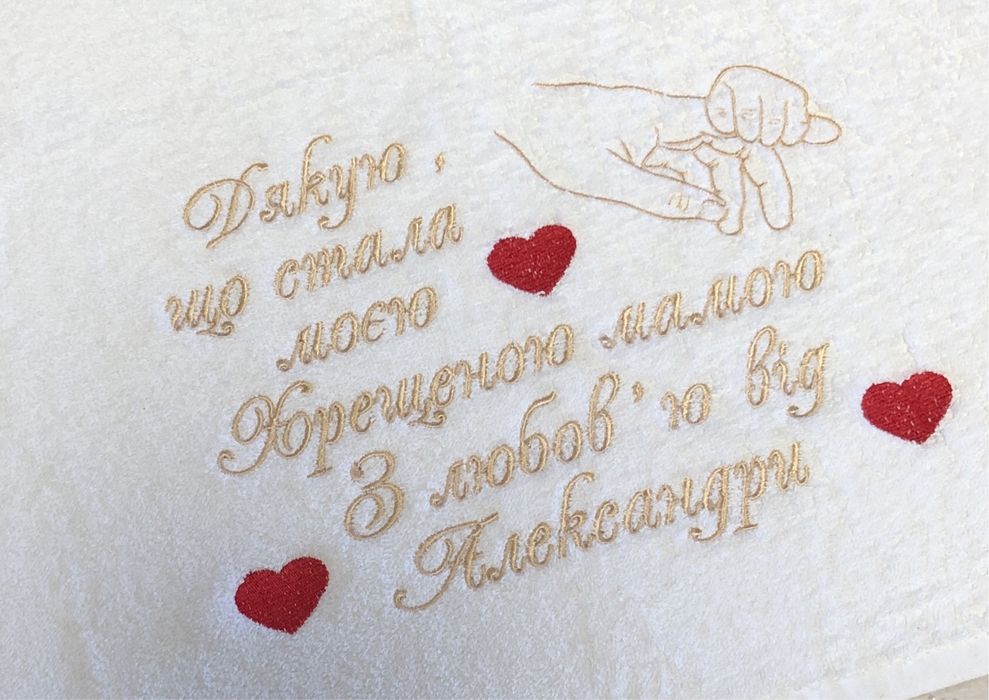 Дякую,
що стала
моєю
Хрещеною мамою
З любов'ю від
Александри